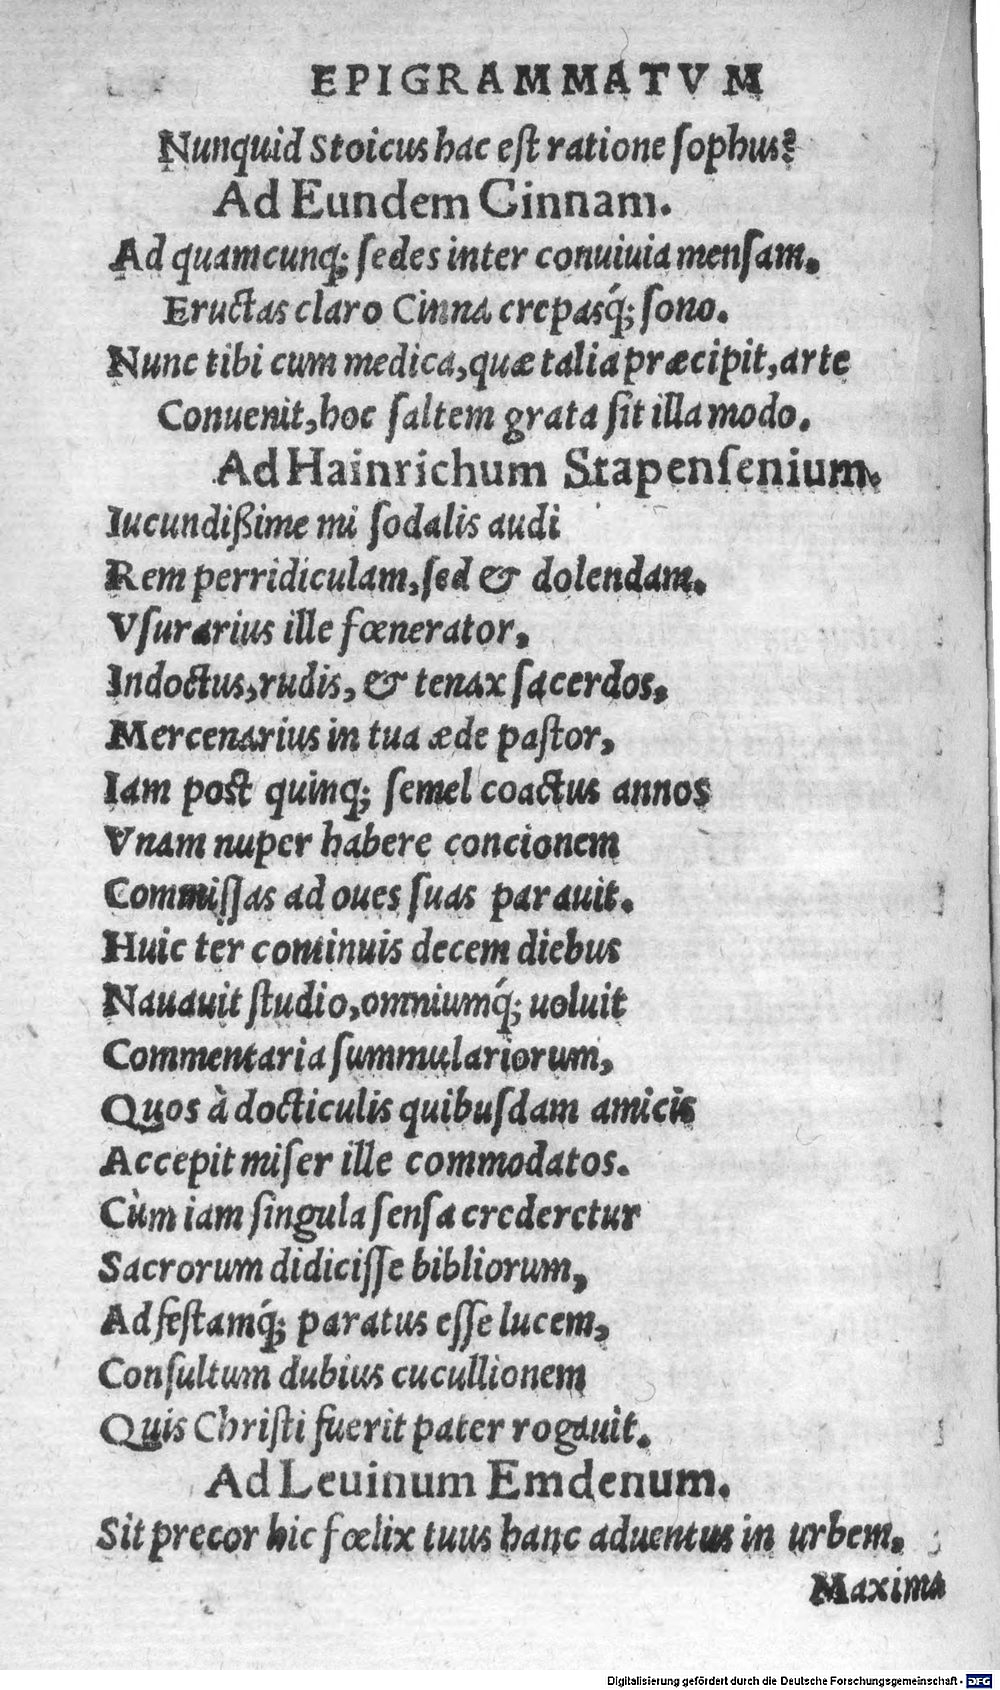 EPIGRAMMATVM
Nunquid Stoicus hac eſt ratione ſophus?
Ad Eundem Cinnam.
Ad quamcunq; ſedes inter conuiuia menſam,
Eructas claro Cinna crepasq́; ſono.
Nunc tibi cum medica, quæ talia præcipit, arte
Conuenit, hoc ſaltem grata ſit illa modo.
Ad Hainrichum Stapenſenium.
Iucundißime mi ſodalis audi
Rem perridiculam, ſed & dolendam.
Vſurarius ille fœnerator,
Indoctus, rudis, & tenax ſacerdos,
Mercenarius in tua æde paſtor,
Iam poſt quinq; ſemel coactus annos
Vnam nuper habere concionem
Commiſſas ad oues ſuas parauit.
Huic ter continuis decem diebus
Nauauit ſtudio, omniumq́; uoluit
Commentaria ſummulariorum,
Quos à docticulis quibuſdam amicis
Accepit miſer ille commodatos.
Cùm iam ſingula ſenſa crederetur
Sacrorum didiciſſe bibliorum,
Ad feſtamq́; paratus eſſe lucem,
Conſultum dubius cucullionem
Quis Chriſti fuerit pater rogauit.
Ad Leuinum Emdenum.
Sit precor hic fœlix tuus hanc aduentus in urbem,
Maxima
Digitalisierung gefördert durch die Deutsche Forschungsgemeinschaft - DFG